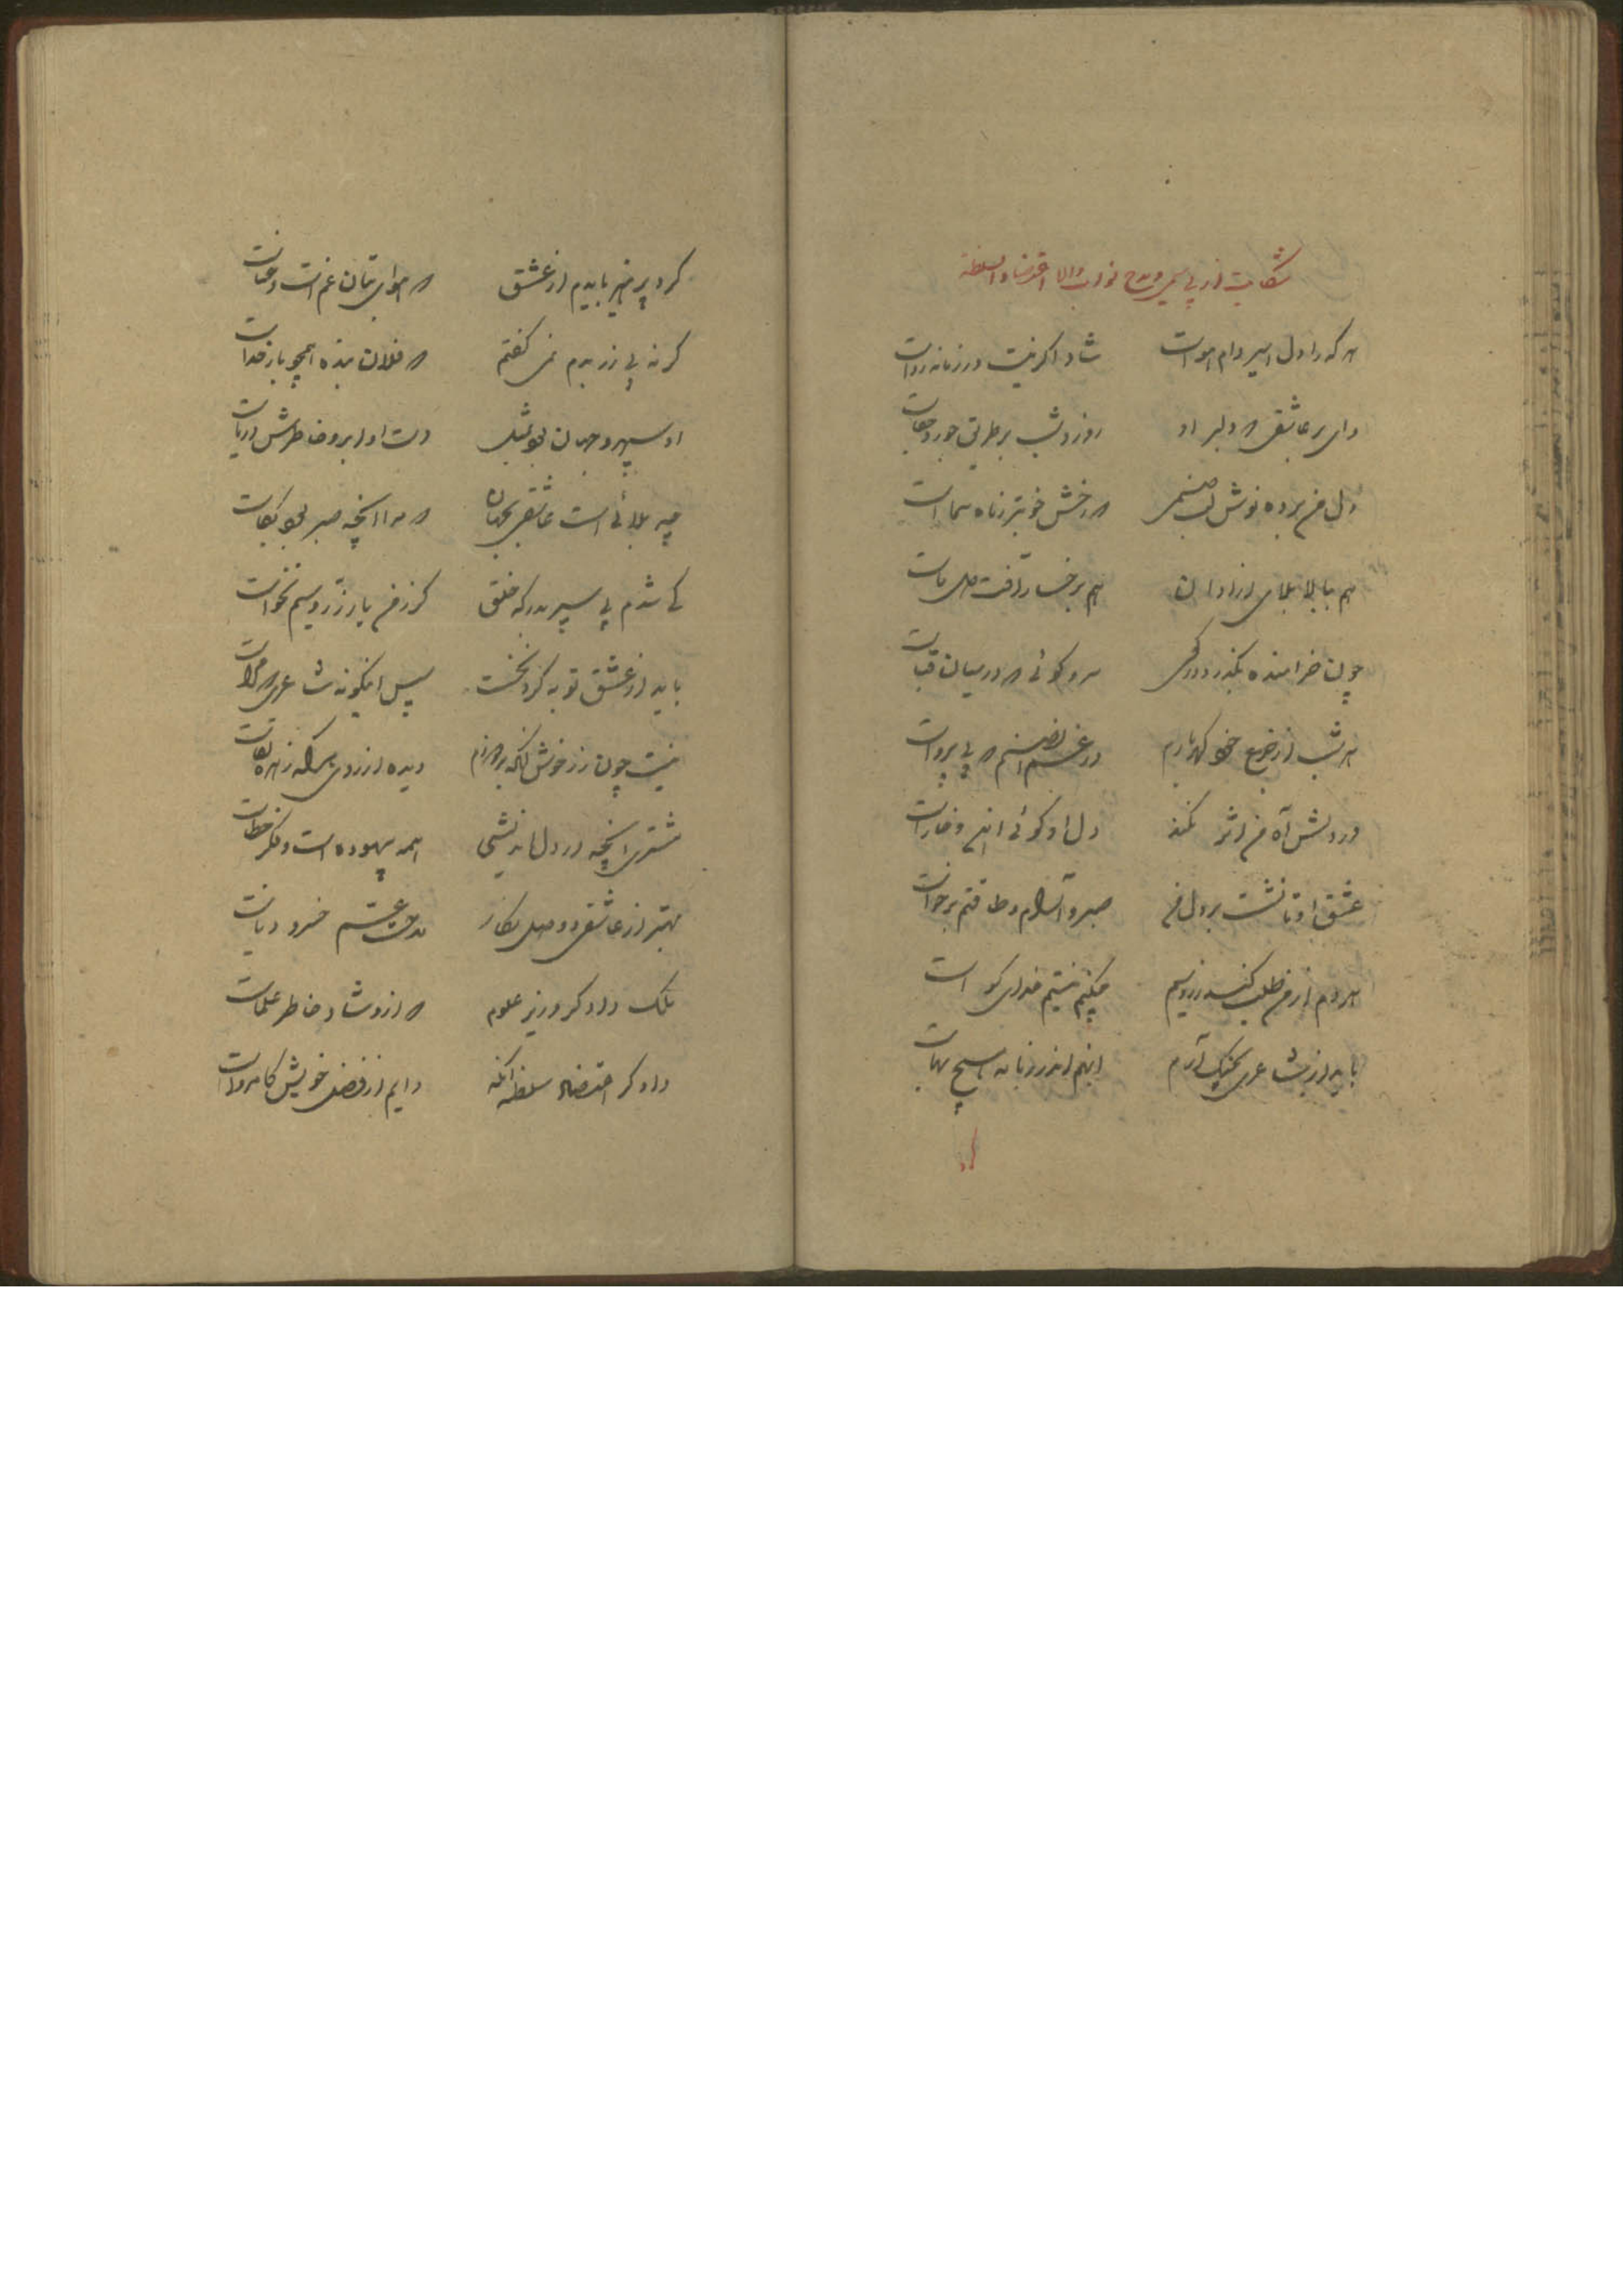 شکایت از بی سیمی و مدح نواب والا اعتضاد السلطنه
هر که را دل اسیر دام هواست شاد اگر نیست در زمانه رواست
وای بر عاشقی که دلبر او روز و شب بر طریق جور و جفاست
دل من برده نوش لب صنمی که رخش خوبتر ز ماه سماست
هم ببالا بلای آزادان هم برخسار آفت صلحاست
چون خرامنده بگذرد گویی سرو گوئی که در میان قباست
هر شب از جزع خود گهر بارم در غم آن صنم که بی پرواست
در دلش آه من اثر نکند دل او گوئی آهن و خاراست
عشق او تا نشست بر دل من صبر و آرام و طاقتم برخواست
هر دم از من طلب کند زر و سیم میکنم نیستم خدای گواست
باید از شاعری بکف آرم اینهم اندر زمانه هیچ بهاست
کرد پرهیز بایدم از عشق که هوای بتان غم است و عناست
گر نه بی زر بدم نمی گفتم که فلان بنده همچو بار خداست
او سپهر و جهان بود بمثل دست او ابر و خاطرش دریاست
چه بلائی است عاشقی بجهان که مرا آنچه صبر بود بکاست
کی شدم پی سپر بدرگه خلق گر ز من یار زر و سیم نخواست
باید از عشق توبه کرد نخست پس اینگونه شاعری که مراست
نیست چون زر خوش آنکه بردارم دیده از روی آنکه زهره لقاست
مشتری آنچه در دل اندیشی همه بیهوده است و فکر خطاست
بهتر از عاشقی و وصل نگار مدحت عم خسرو دنیاست
ملک دادگر وزیر علوم که ازو شاد خاطر علماست
دادگر اعتضاد سلطنه آنکه دایم از فضل خویش کامرواست